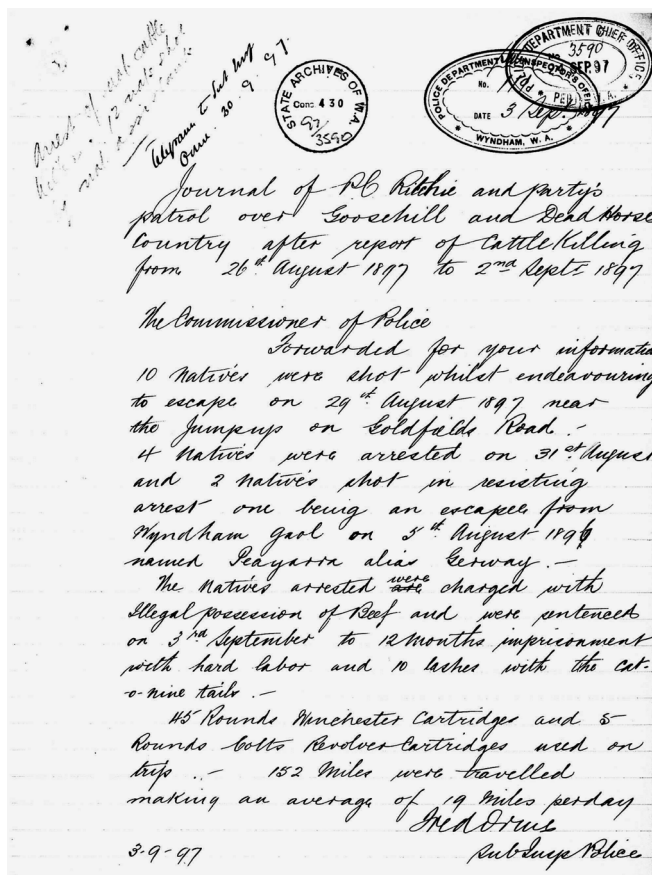 Arrest of nat cattle
killers & 12 nats shot
by nat assistants
Telegram to Sub Insp
Orme. 30.9.97.
STATE ARCHIVES OF W.A.
Cons 430
97/
3590
POLICE DEPARTMENT CHIEF OFFICE
3590
SEP. 97
PERTH, W.A.
POLICE DEPARTMENT INSPECTOR'S OFFICE
No.
DATE 3 Sep. 1897
WYNDHAM, W. A.
Journal of PC Ritchie and party's
patrol over Goosehill and Dead Horse
Country after report of Cattle Killing
from 26th August 1897 to 2nd Sept 1897
The Commissioner of Police
Forwarded for your informatio
10 Natives were shot whilst endeavouring
to escape on 29th August 1897 near
the Jumpups on Goldfields Road.-
4 Natives were arrested on 31st August
and 2 natives shot in resisting
arrest one being an escapee from
Wyndham Gaol on 5th August 1896
named Peayarra alias Gerway.-
The Natives arrested were are charged with
Illegal possession of Beef and were sentenced
on 3rd September to 12 Months imprisonment
with hard labor and 10 lashes with the cat-
o-nine tails.-
45 Rounds Winchester Cartridges and 5
Rounds Colts Revolver Cartridges used on
trip.- 152 Miles were travelled
making an average of 19 Miles per day
Fred Orme
3-9-97 Sub Insp Police